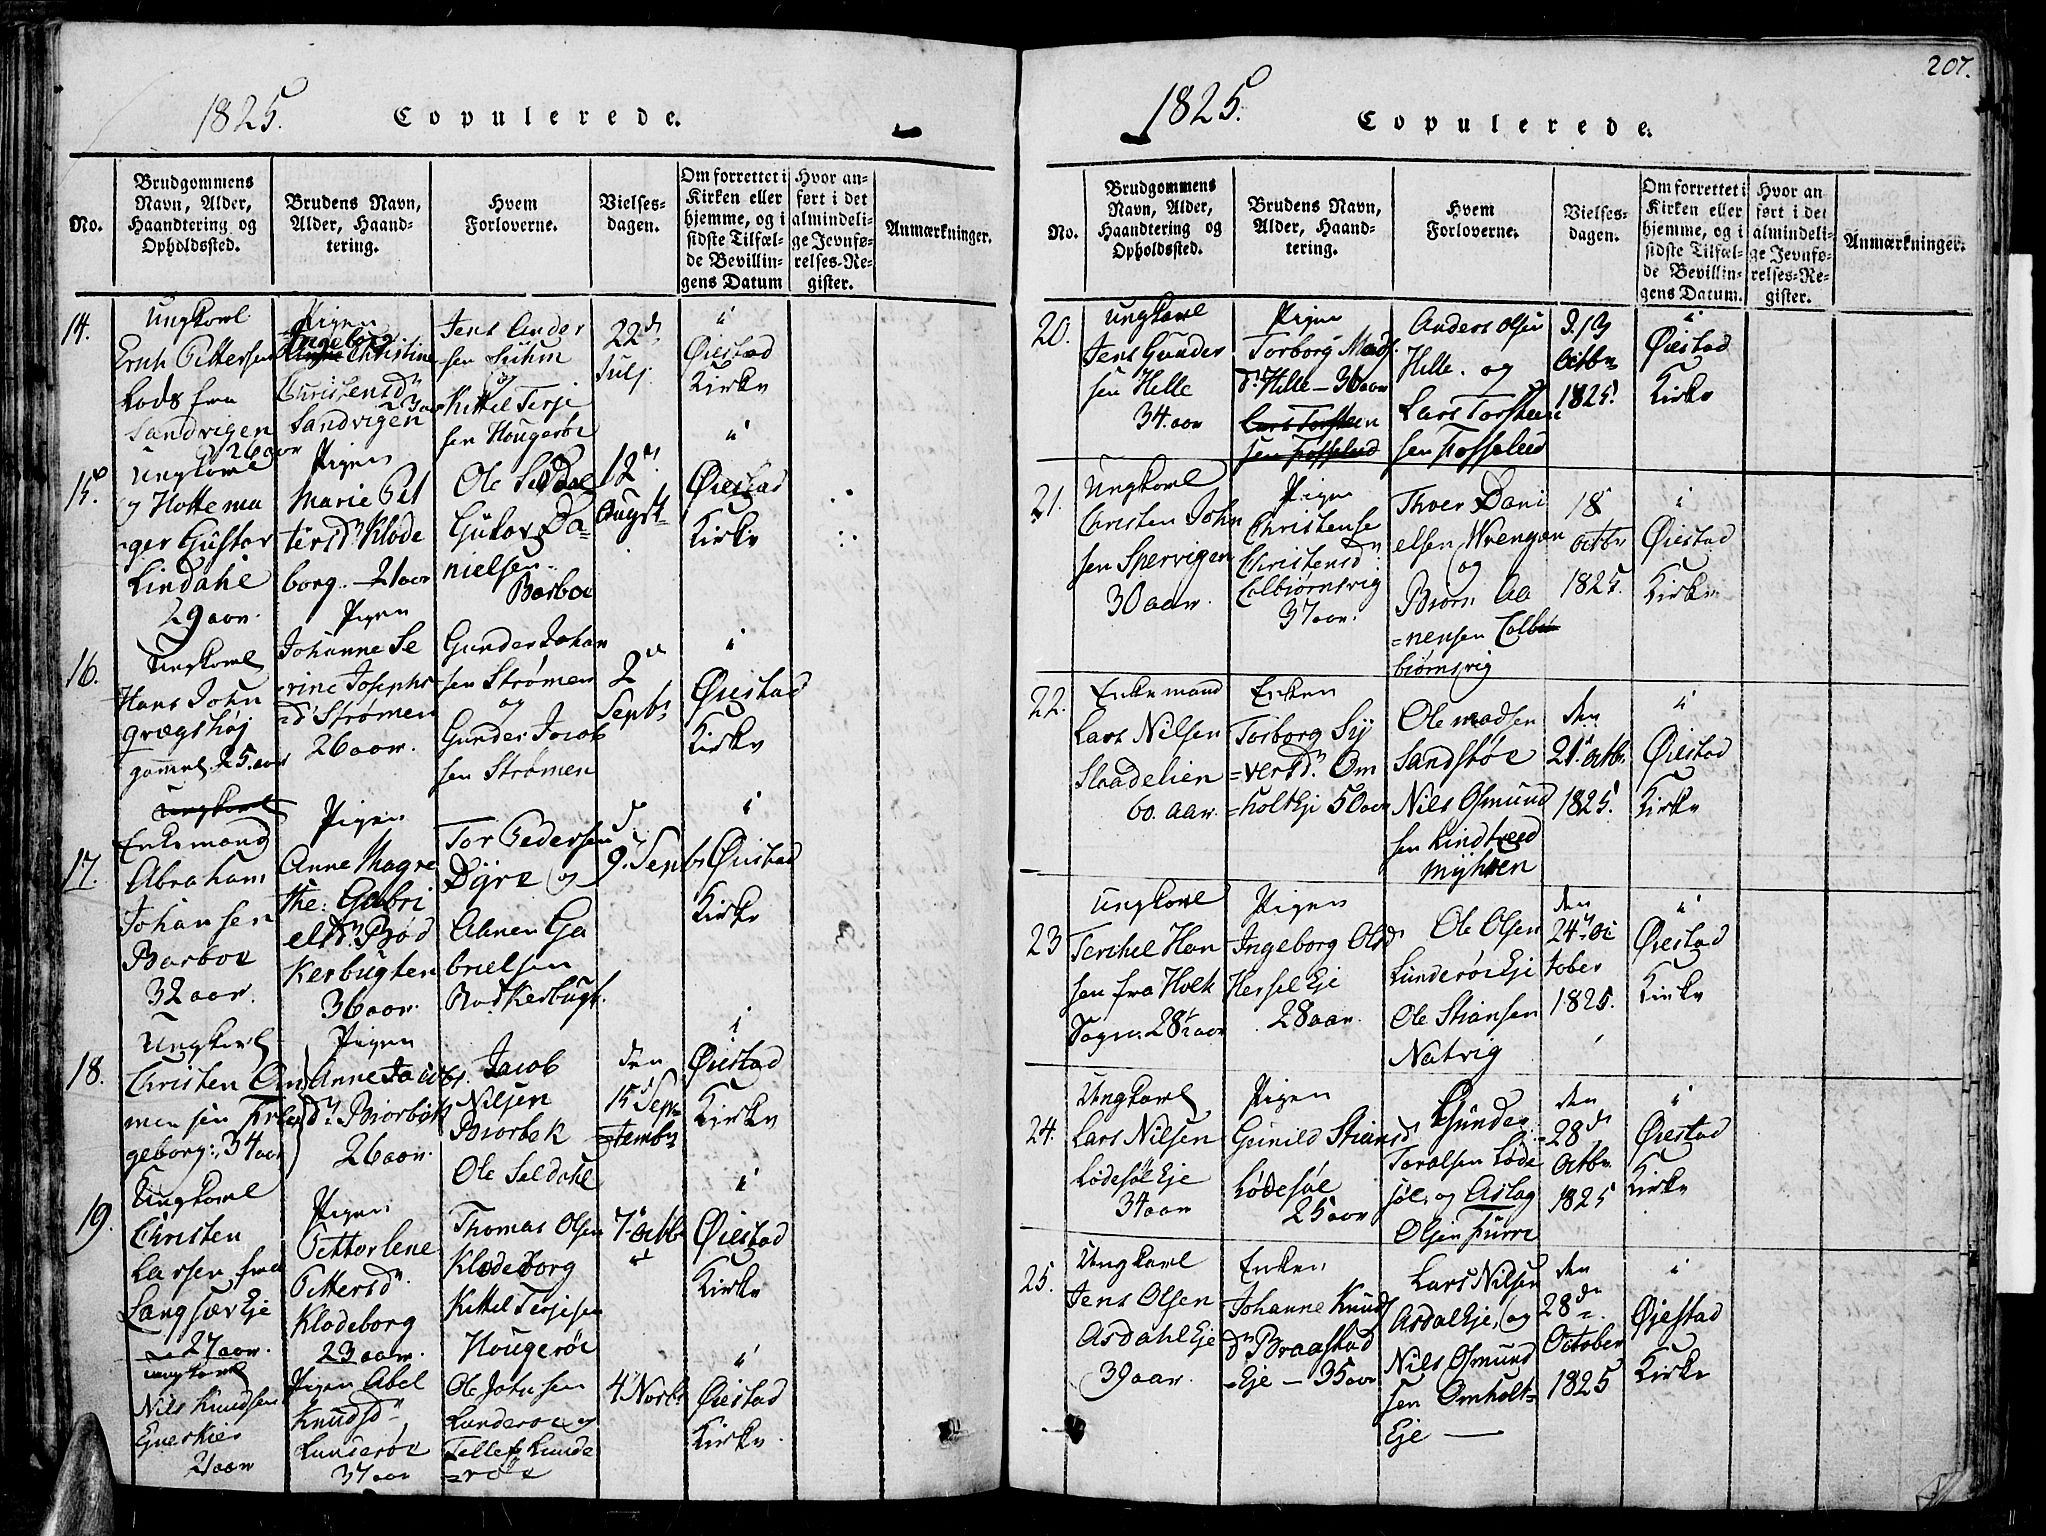 1825.
Copulerede.
No.
Brudgommens
Navn, Alder,
Haandtering og
Opholdssted.
Brudens Navn,
Alder, Haand-
tering.
Hvem
Forloverne.
Vielses-
dagen.
Om forrettet i
Kirken eller
hjemme, og i
sidste Tilfæl-
de Bevillin-
gens Datum
Hvor an-
ført i det
almindeli-
ge Jevnfø-
relses-Re-
gister.
Anmærkninger.
14.
Ungkarl
Erich Pettersen
Lods fra
Sandvigen
26 aar
Pigen
Ingeborg
Christine
Christensdr
Sandvigen
Jens Ander
sen Suhm
og
Kittel Terje
sen Hougerøe
22d
Julj.
i
Øiestad
Kirke
15.
Ungkarl
ger Gustav
Lindahl
29 aar.
Pigen
Marie Pet
tersdr Klode
borg. 21 aar
Ole Seldal
Gustav Da=
nielsen
Barboe
12
Augst
i
Øiestad
Kirke
16.
Ungkarl
Hans John
Grægshøj
gammel 25. aar
Pigen
Johanne Se
rine Josephs
=dr Strømen
26 aar.
Gunder Johan
sen Strømen
og
Gunder Jacob
sen Strømen
2
Septbr
i
Øiestad
Kirke
17.
Ungkarl
Enkemand
Abraham
Johansen
Barboe
32 aar.
Pigen
Anne Magre
the: Gabri
elsdr Rød
Kerbugten
36 aar.
Tor Pedersen
Dÿre og
Abnen Ga
brielsen
Rødkerbugt.
9. Septbr
i
Øiestad
Kirke
18.
Ungkarl
Christen Om
men sen
geborg: 34 aar
Pigen
Anne Jacobs.
dr Biorbek
26 aar.
Jacob
Nilsen
Biorbek
Ole Seldahl
den
15 Sep
=tembr
i
Øiestad
Kirke
19.
Ungkarl
Christen
Larsen fra
Langsæv Eje
27 aar.
Pigen
Petterlene
Pettersdr
Klodeborg
23 aar.
Thomas Olsen
Klodeborg
Kittel Terjesen
Hougerøe
7 Octbr
i
Øiestad
Kirke
Ungkarl
Nils Knudsen
21 aar
Pigen Abel
Knudsdr
Lunderøe
37 aar
Ole Johnsen
Lunderøe og
Tellef Lunde
=røe
4 Novbr
i
Øiestad
Kirke
207.
1825.
Copulerede.
No.
Brudgommens
Navn, Alder,
Haandtering og
Opholdssted.
Brudens Navn,
Alder, Haand-
tering.
Hvem
Forloverne.
Vielses-
dagen.
Om forrettet i
Kirken eller
hjemme, og i
sidste Tilfæl-
de Bevillin-
gens Datum.
Hvor an
ført i det
almindeli-
ge Jevnfø-
relses-Re-
gister.
Anmærkninger.
20.
Ungkarl
Jens Gunder
sen Helle
34. aar
Pigen
Torborg Mads.
dr Helle - 36 aar
Lars Torsteen
sen Fosselud
Anders Olsen
Helle. og
Lars Torsteen
sen Fosselud
Octbr
1825.
i
Øiestad
Kirke
21.
Ungkarl
Christen John
sen Spervigen
30 aar.
Pigen
Christense
Christensdr
Colbiørnsvig
37 aar.
Thoer Dani
elsen Wrengen
og
Biørn Aa
=nensen Colbi
biørnsvig
18
Octbr
1825.
i
Øiestad
Kirke
22.
Enkemand
Lars Nilsen
Slaadelien
60. aar.
Enken
Torborg Sy
=versdr. Om
=holt Eje 50 aar
Ole Madsen
Sandstøe
Nils Osmund
sen Lindtveed
Myhren
den
21. Octbr
1825.
i
Øiestad
Kirke
23
Ungkarl
Terchel Han
sen fra Holt
Sogn. 28½ aar
Pigen
Ingeborg Olsd
Hessel Eje
28 aar.
Ole Olsen
Lunderøe Eje
Ole Stiansen
Natvig
den
24 Oc
tober
1825.
i
Øiestad
Kirke
24.
Ungkarl
Lars Nilsen
Lødesøl Eje
34 aar
Pigen
Gunild Stiansd
Lødesøl
25 aar
Gunder
Toralsen Løde
søl, og Aslag
Olsen Furre
den
28d
Octbr.
1825
i
Øiestad
Kirke
25.
Ungkarl
Jens Olsen
Asdahl Eje
39 aar.
Enken
Johanne Knuds
dr Braastad
=Eje - 35 aar
Lars Nilsen
Asdal Eje, og
Nils Osmund
sen Omholt=
Eje
den
28d
October
1825
i
Øjestad
Kirke